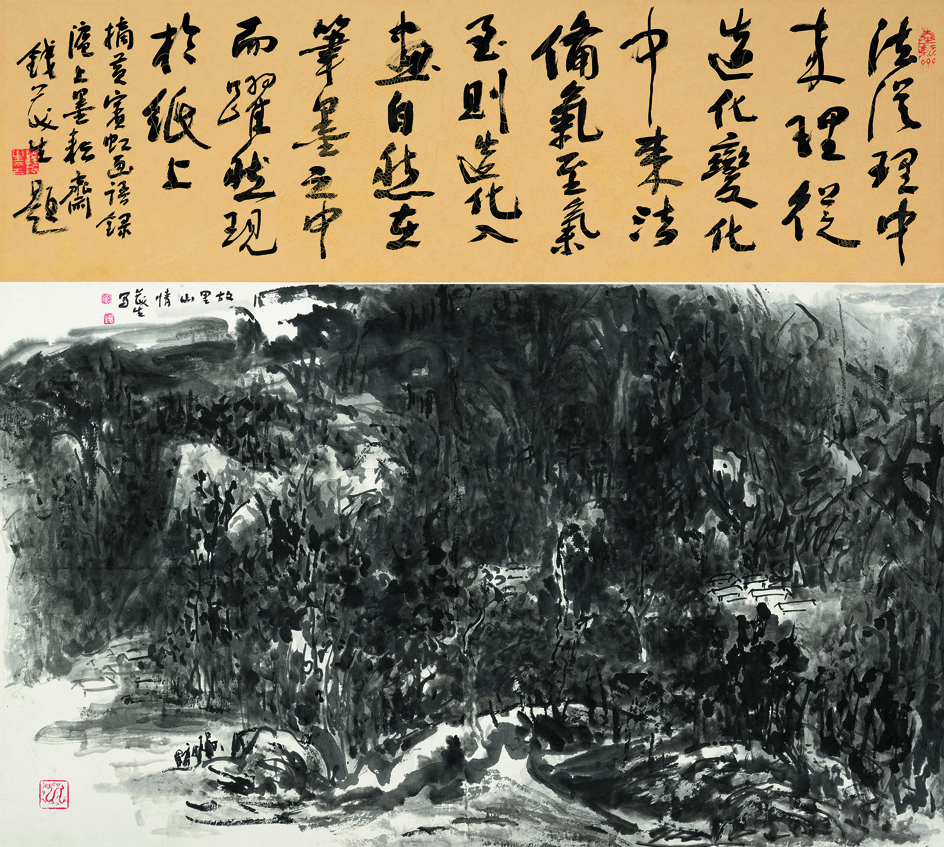 法从理中
来理從
造化變化
中來法
備氣至氣
至則造化入
畫自然在
筆墨之中
而躍然現
於紙上
摘黄賓虹画語録
滬上墨耘齋
錢茂生題
故里山情
茂生写